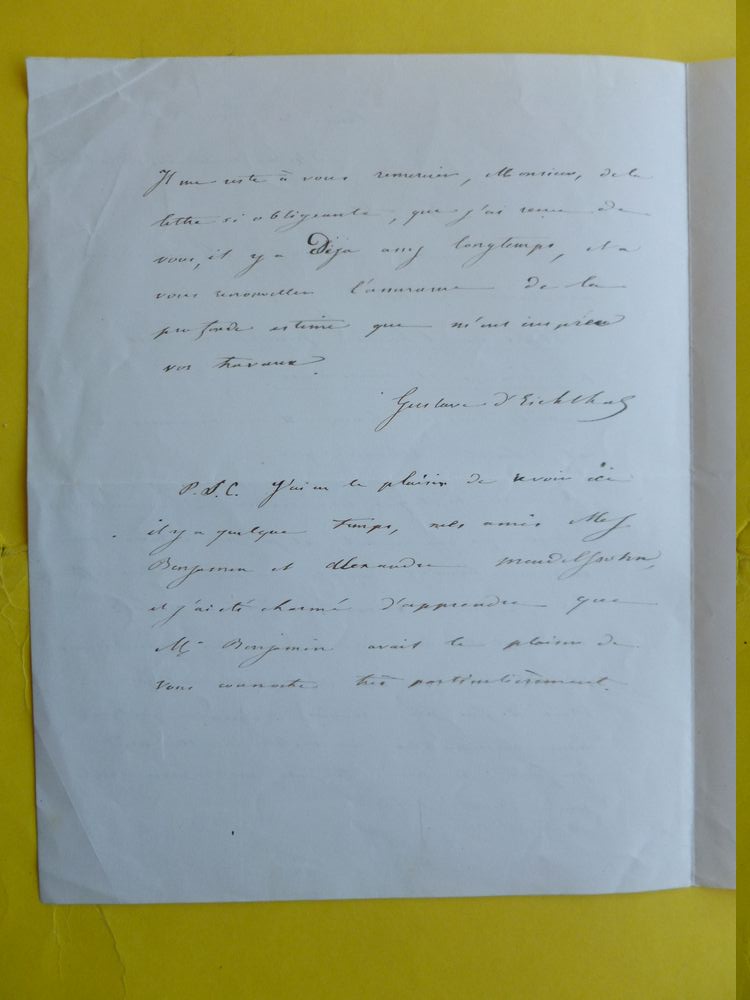 Il me reste à vous remercier, Monsieur, de la
lettre si obligeante, que j'ai reçue de
vous, il y a Déjà assez longtemps, et à
vous renouveller l'assurance de la
profonde estime que m'ont inspirée
vos travaux.
Gustave d'Eichthal
P.S.C. J'ai eu le plaisir de revoir ici
il y a quelque temps, mes amis Mess
Benjamin et Alexandre Mendelssohn,
et j'ai été charmé d'apprendre que
Mr Benjamin avait le plaisir de
vous connoitre très particulièrement.